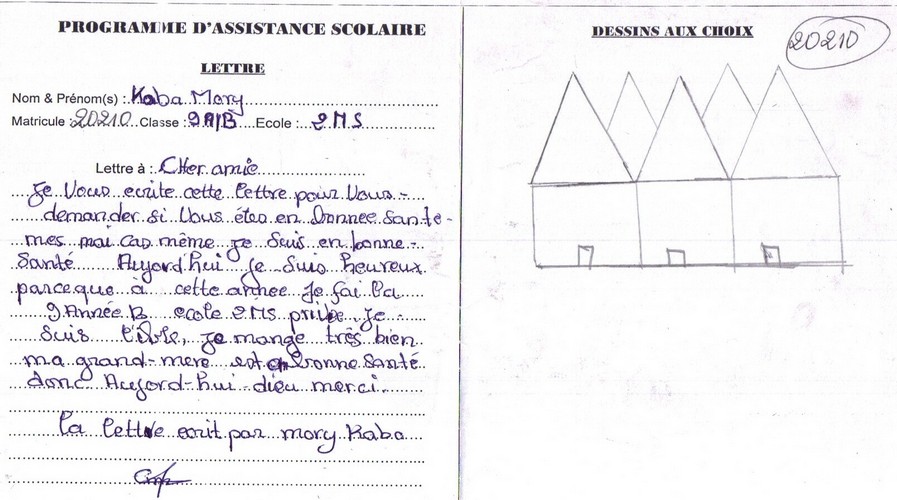 PROGRAMME D'ASSISTANCE SCOLAIRE
LETTRE
Nom & Prénom(s) : Kaba Mory
Matricule : 20210 Classe : 9A/B Ecole : 2MS
Lettre à : Cher amie
Je Vous ecrite cette lettre pour Vous
demander si Vous étes en bonnee Sante
mes moi cas même je Suis en bonne
Santé Aujord'hui je Suis heureux
parceque à cette année Je fai la
9Année B ecole 2MS privée Je
Suis je mange très bien
ma grand-mere est en bonne Santé
donc Aujord-hui dieu merci
la lettre ecrit par mory Kaba
DESSINS AUX CHOIX
20210